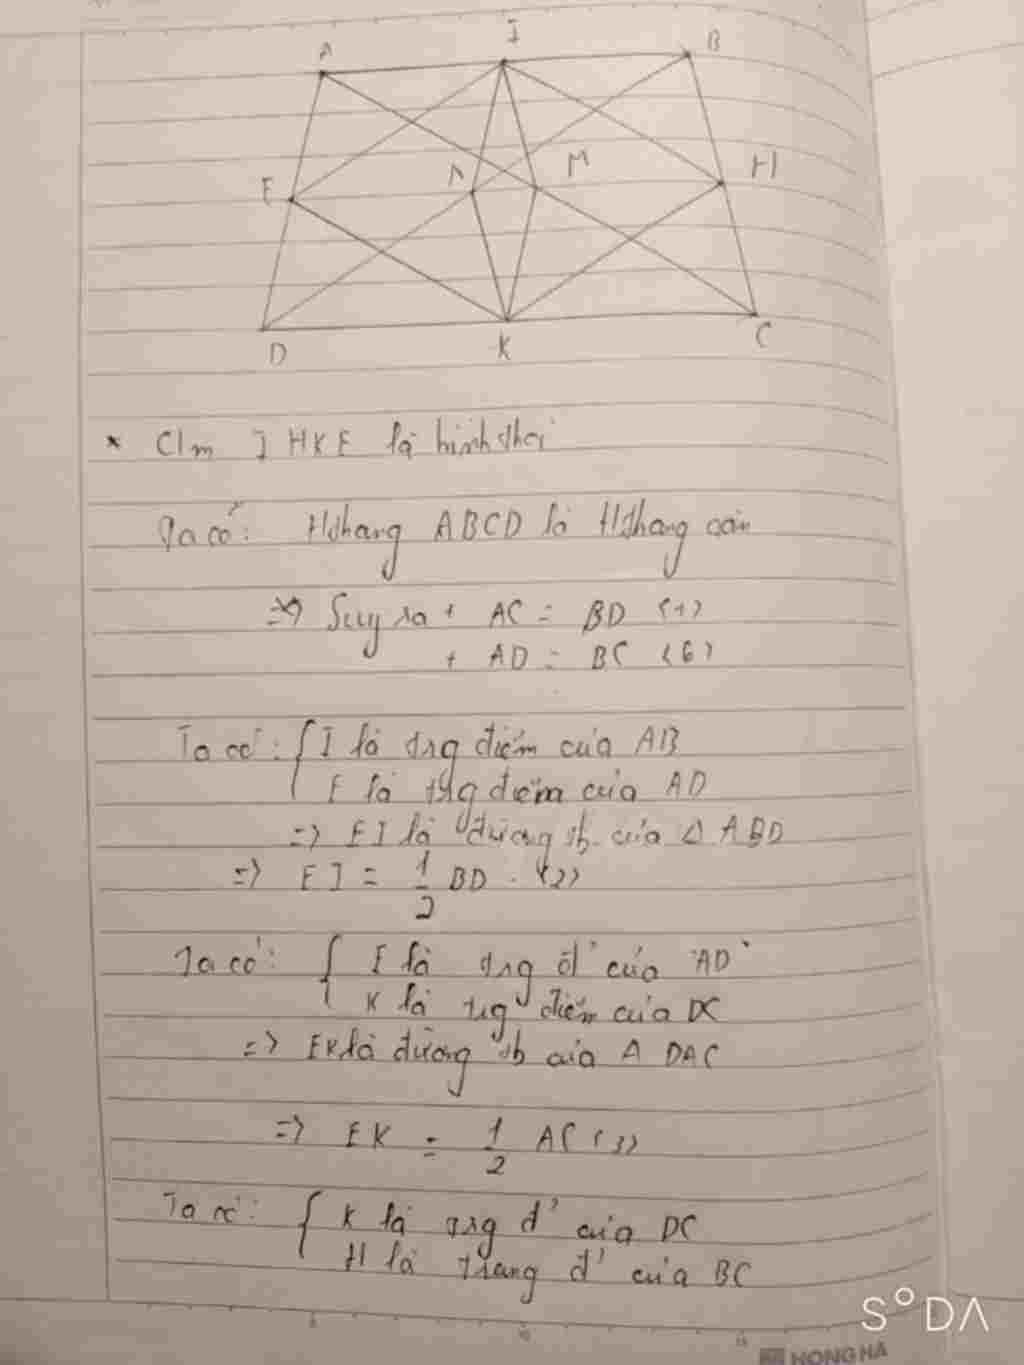 A I B
E N M H
D K C
* C/m I HKE là hình thoi
Ta có: Hthang ABCD là Hthang cân
=> Suy ra + AC = BD (1)
+ AD = BC (6)
Ta có: { I là trg điểm của AB
E là trg điểm của AD
=> EI là đường tb của Δ ABD
=> EI = 1/2 BD. (2)
Ta có: { E là trg đ' của AD
K là trg điểm của DC
=> EK là đường tb của Δ DAC
=> EK = 1/2 AC (3)
Ta có: { K là trg đ' của DC
H là trung đ' của BC
SODA
HONG HA